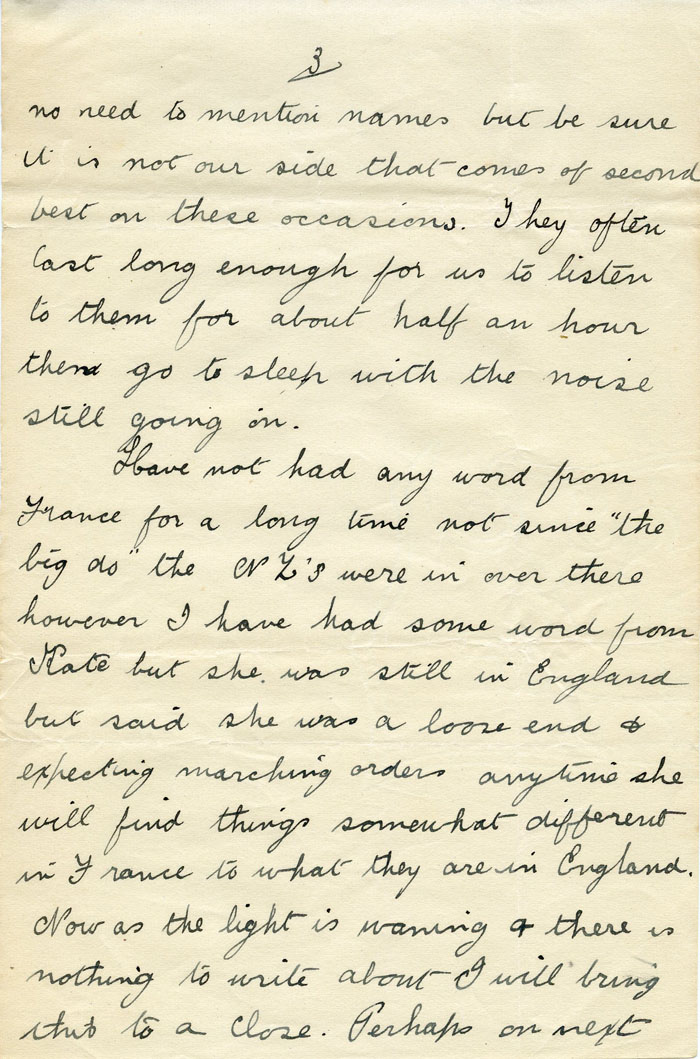 3
no need to mention names but be sure
it is not our side that comes of second
best on these occasions. They often
last long enough for us to listen
to them for about half an hour
then go to sleep with the noise
still going on.
Have not had any word from
France for a long time not since "the
big do" the NZ's were in over there
however I have had some word from
Kate but she was still in England
but said she was a loose end &
expecting marching orders anytime she
will find things somewhat different
in France to what they are in England.
Now as the light is waning & there is
nothing to write about I will bring
this to a close. Perhaps on next